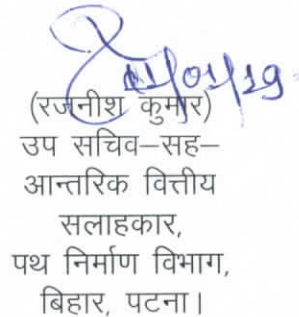 01/01/19
(रजनीश कुमार)
उप सचिव–सह–
आन्तरिक वित्तीय
सलाहकार,
पथ निर्माण विभाग,
बिहार, पटना।